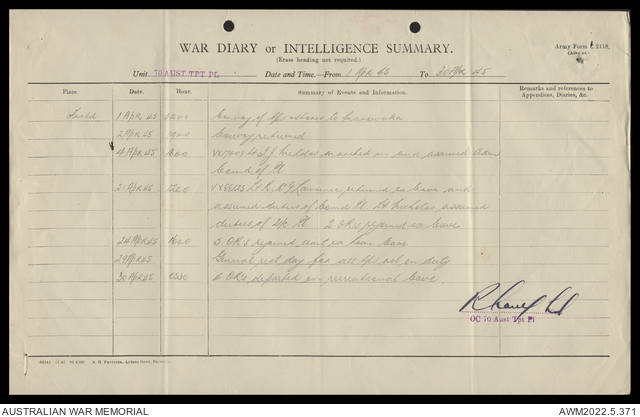 WAR DIARY OR INTELLIGENCE SUMMARY.
(Erase heading not required.)
Army Form C.2118.
Unit 70 AUST TPT PL Date and Time.—From 1 Apr 45 To 30 Apr 45
Place. Date. Hour. Summary of Events and Information. Remarks and references to Appendices, Diaries, &c.
Field 1 APR 45 1200 Convoy of stores to
2 APR 45 1900 Convoy returned
4 APR 45 1600 Lt J Nicholas marched in and assumed
Comd of Pl
21 APR 45 1200 Lt R. Lawrence returned ex leave and
assumed duties of Comd Pl Lt Nicholas assumed
duties of 2/c Pl 2 ORs rejoined ex leave
24 APR 45 1600 3 ORs rejoined unit ex home leave
29 APR 45 General rest day for all not on duty
30 APR 45 0530 ORs departed on recreational leave.
Lt
OC 70 Aust Tpt Pl
AUSTRALIAN WAR MEMORIAL
AWM2022.5.371